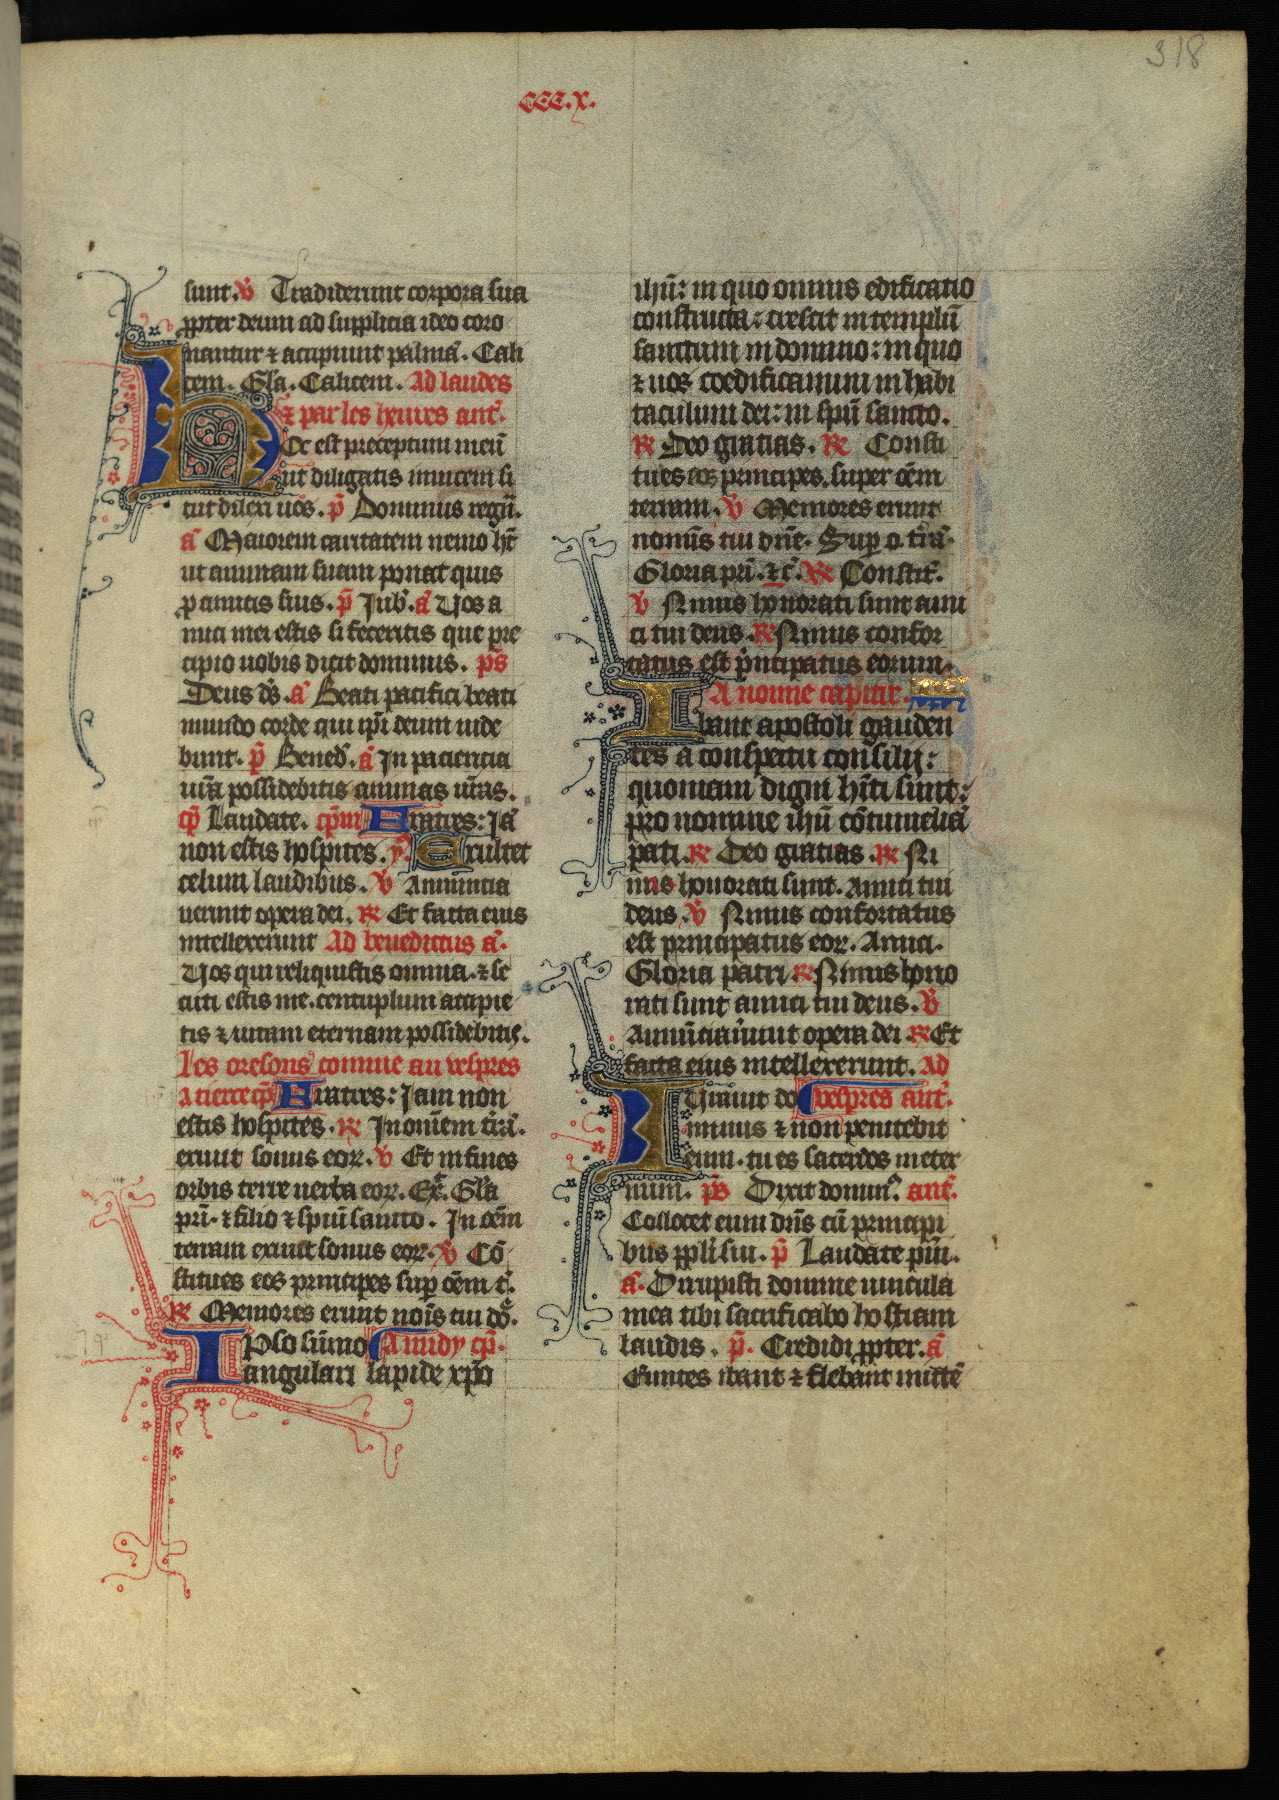 318
CCC.X.
sunt. V Tradiderunt corpora sua
ppter deum ad supplicia ideo coro
nantur ⁊ accipiunt palmā. Cali
cem. Gl'a. Calicem. Ad laudes
⁊ par les heures ant'.
Hoc est preceptum meū
ut diligatis inuicem si
cut dilexi uos. p̄ Dominus regn̄.
a' Maiorem caritatem nemo h̄t
ut animam suam ponat quis
p amicis suis. p̄ Jub'. a' Uos a
mici mei estis si feceritis que pre
cipio uobis dicit dominus. ps
Deus d's. a' Beati pacifici beati
mundo corde qui ip̄i deum uide
bunt. p̄ Bened'. a' In paciencia
ur̄a possidebitis animas ur̄as.
p̄ Laudate. cpm Fratres: Jā
non estis hospites. y' Exultet
celum laudibus. V Annuncia
uerunt opera dei. R Et facta eius
intellexerunt Ad benedictus a'.
Uos qui reliquistis omnia. ⁊ se
cuti estis me. centuplum accipie
tis ⁊ uitam eternam possidebitis.
Les oresons comme au vespres
a tierce cp̄ Fratres: Jam non
estis hospites. R In om̄em t'rā.
exiuit sonus eor. V Et in fines
orbis terre uerba eor. Ex'. Gl'a
pr̄i. ⁊ filio ⁊ spiū sancto. In oēm
terram exiuit sonus eor. V Cō
stitues eos principes sup oēm t'.
R Memores erunt nois tui do'.
Ipso sūmo A midy cp̄.
angulari lapide xp̄o
ihū: in quo omnis edificatio
constructa: crescit in templū
sanctum in domino: in quo
⁊ uos coedificamini in habi
taculum dei: in spū sancto.
R Deo gracias. R Consti
tues eos principes. super oēm
terram. V Memores erunt
nominis tui dn̄e. Sup o. t'rā.
Gloria pr̄i. ⁊c'. R Constit'.
V Nimis honorati sunt ami
ci tui deus. R Nimis confor
tatus est p'ncipatus eorum.
A nonne capitir.
Ibant apostoli gauden
tes a conspectu consilij:
quoniam digni h̄iti sunt:
pro nomine ihū cōtumeliā
pati. R Deo gracias. R Ni
mis honorati sunt. Amici tui
deus. V Nimis confortatus
est principatus eor. Amici.
Gloria patri. R Nimis hono
rati sunt amici tui deus. V
Annūciau'unt opera dei. R Et
facta eius intellexerunt. Ad
Iurauit do vespres ant'.
minus ⁊ non penitebit
eum. tu es sacerdos in eter
num. ps Dixit domin'. ant'.
Collocet eum dn̄s cū principi
bus ppli sui. p̄ Laudate pūi.
a'. Dirupisti domine uincula
mea tibi sacrificabo hostiam
laudis. p̄. Credidi ppter. a'
Euntes ibant ⁊ flebant mittē